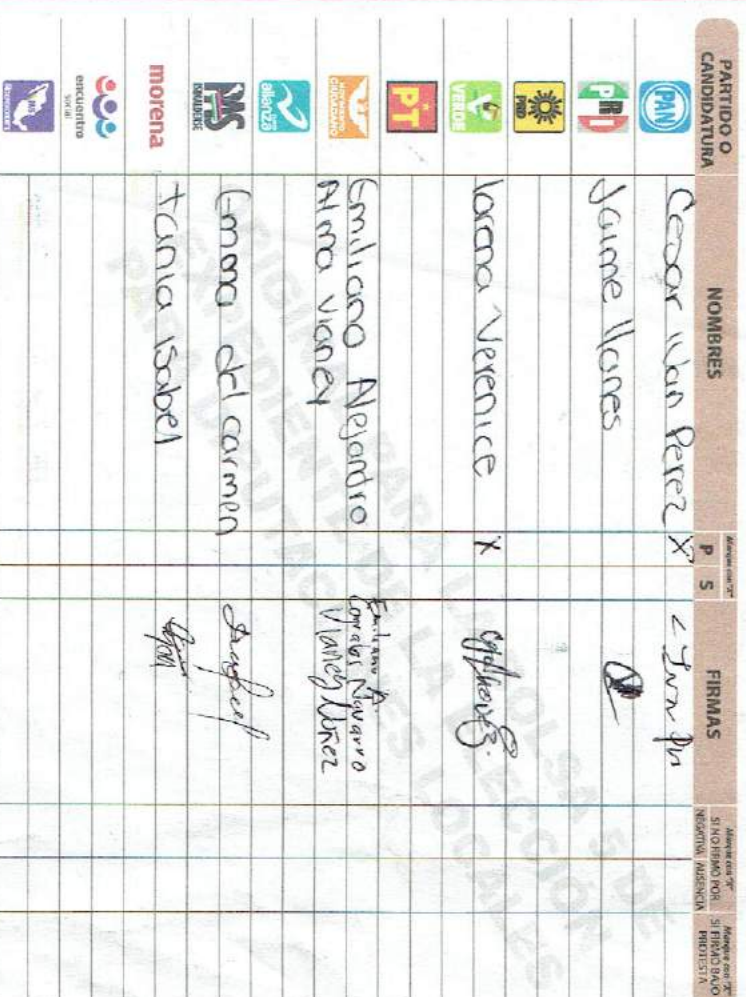 PARTIDO O CANDIDATURA
NOMBRES
Marque con "X"
P S
FIRMAS
Marque con "X"
SI NO FIRMÓ POR
NEGATIVA AUSENCIA
Marque con "X"
SI FIRMÓ BAJO PROTESTA
PAN Cesar Ivan Perez X
PRI Jaime llanes
PRD
VERDE Lorena Verenice X
PT
MOVIMIENTO CIUDADANO Emiliano Alejandro Emiliano A.
Alma Vianey Vianey Nuñez
alianza
PAS
SINALOENSE Emma del carmen
morena Tania Isabel
encuentro social
ORIGINAL PARA LA BOLSA 5 DE
EXPEDIENTE DE LA ELECCIÓN
PARA DIPUTACIONES LOCALES